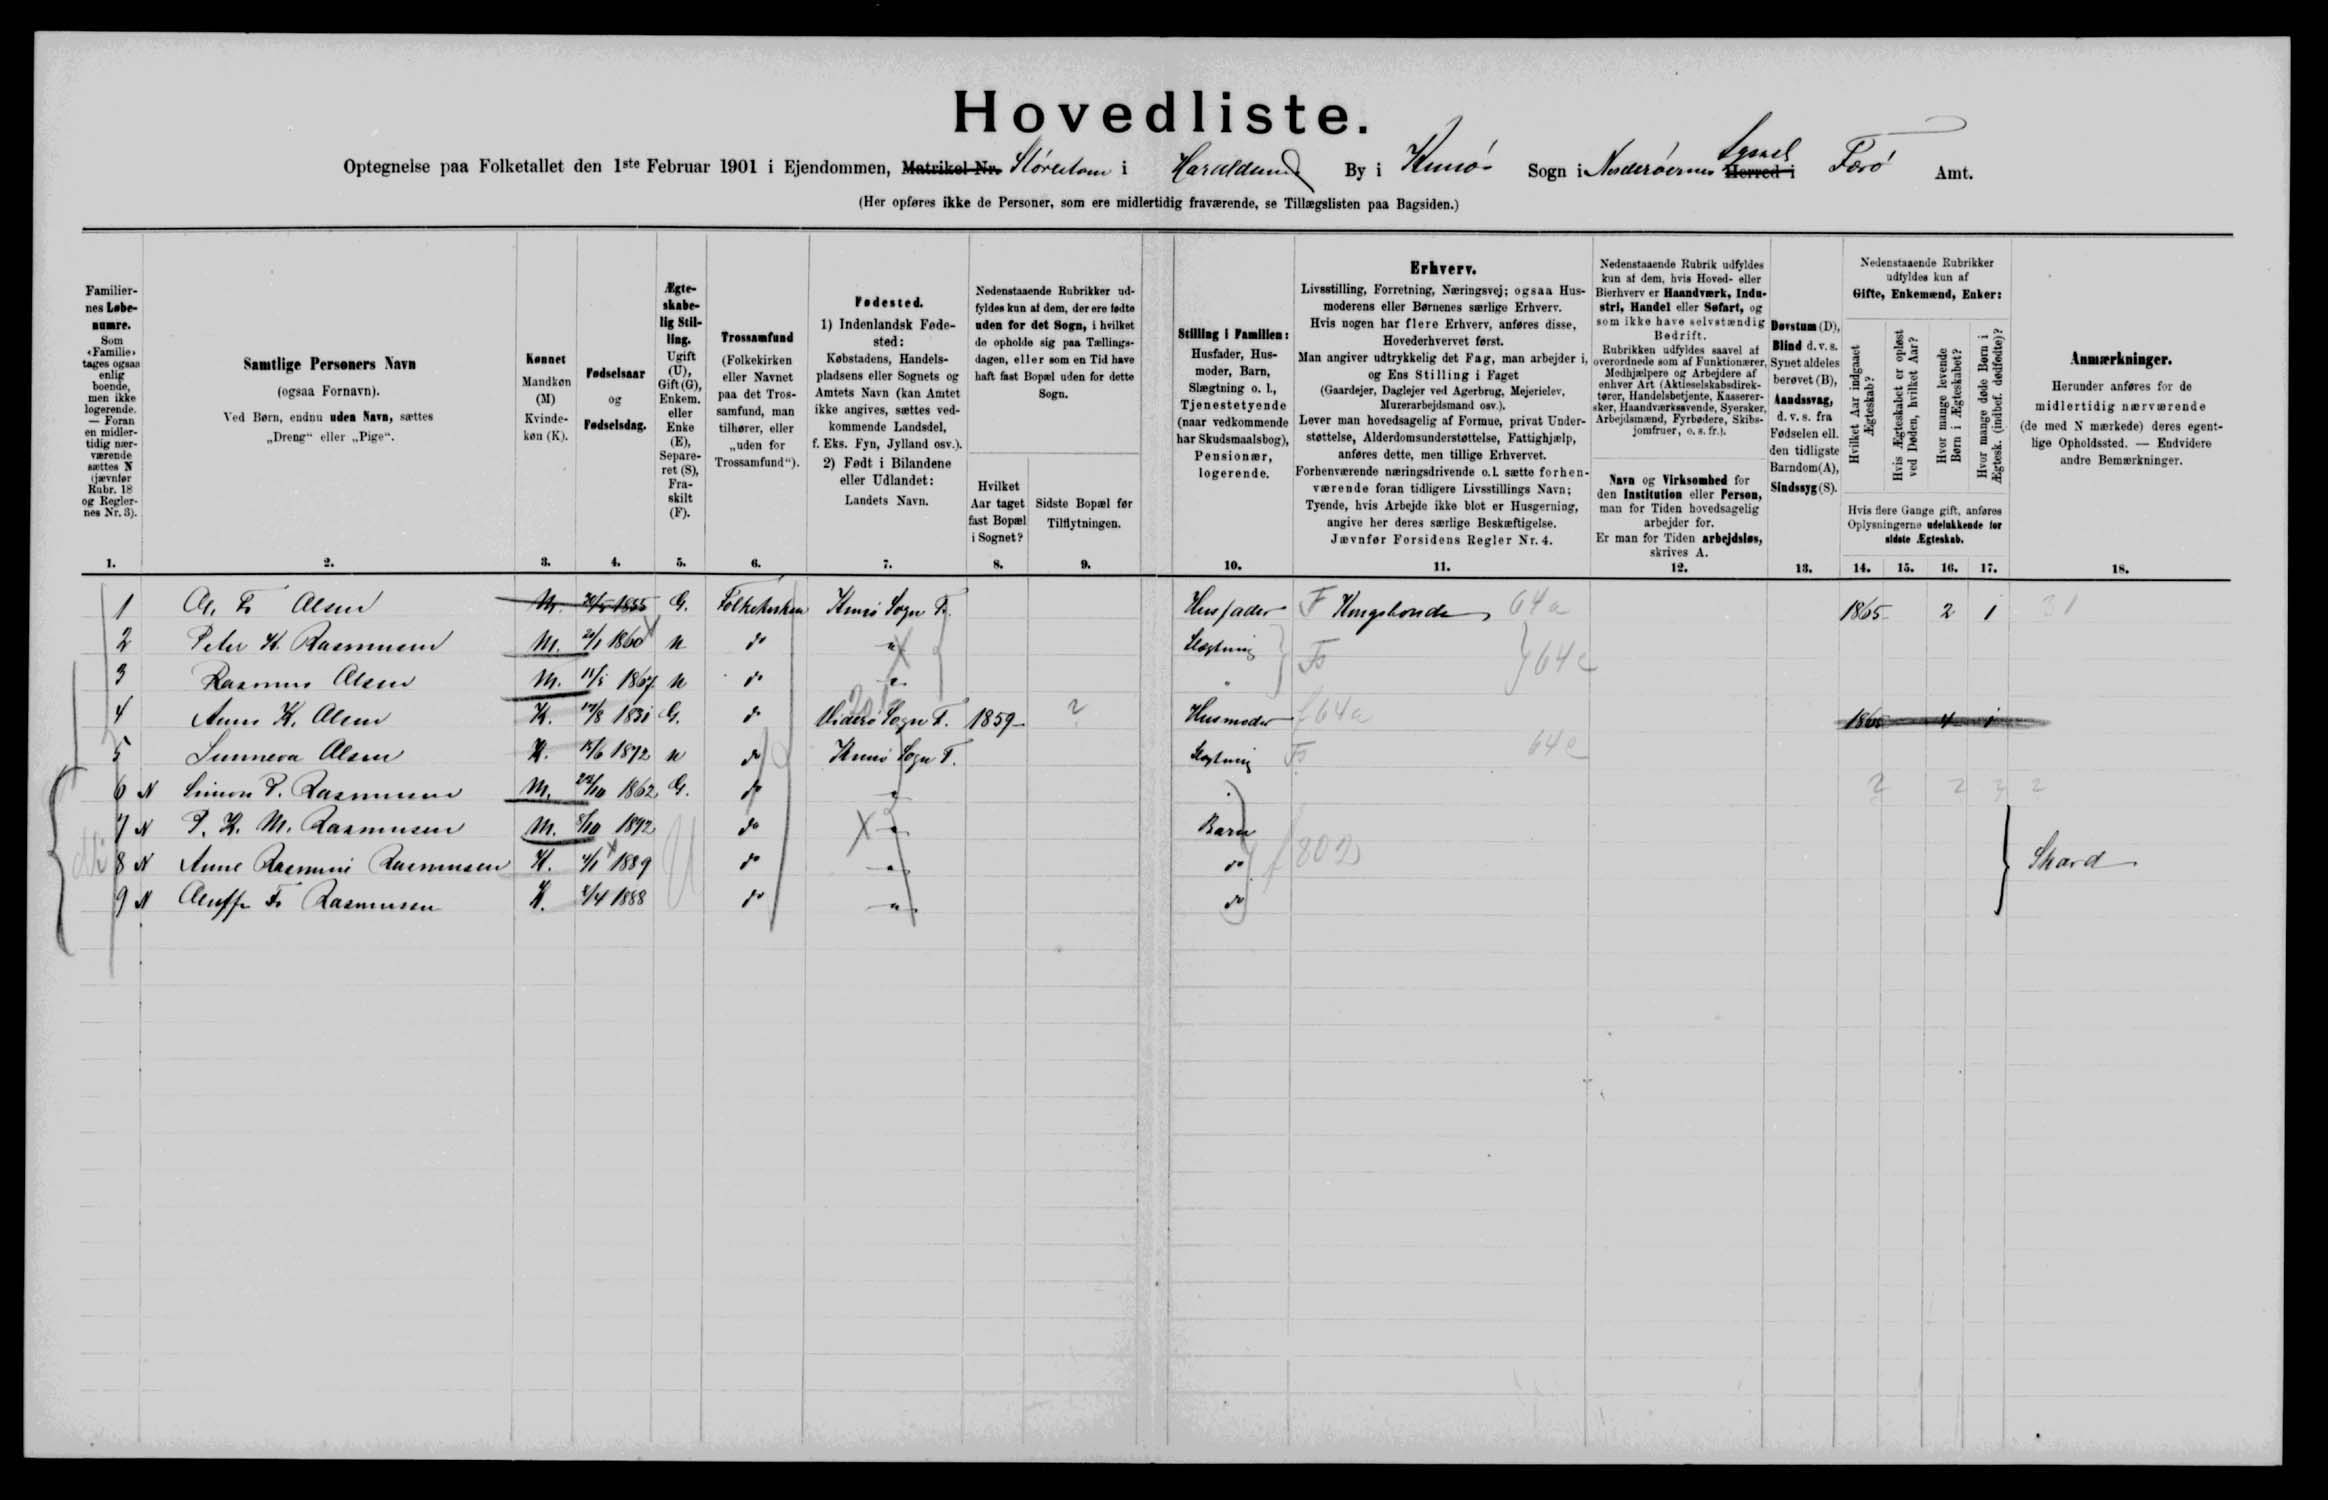 Hovedliste.
Optegnelse paa Folketallet den 1ste Februar 1901 i Ejendommen, Matrikel Nr. i Haraldsund By i Kunø Sogn i Norderøernes Herred i Syssel Færø Amt.
(Her opføres ikke de Personer, som ere midlertidig fraværende, se Tillægslisten paa Bagsiden.)
Familier-
nes Løbe-
numre.
Som
«Familie»
tages ogsaa
enlig
boende,
men ikke
logerende.
— Foran
en midler-
tidig nær-
værende
sættes N
(jævnfør
Rubr. 18
og Regler-
nes Nr. 3).
Samtlige Personers Navn
(ogsaa Fornavn).
Ved Børn, endnu uden Navn, sættes
„Dreng“ eller „Pige“.
Kønnet
Mandkøn
(M)
Kvinde-
køn (K).
Fødselsaar
og
Fødselsdag.
Ægte-
skabe-
lig Stil-
ling.
Ugift
(U),
Gift (G),
Enkem.
eller
Enke
(E),
Separe-
ret (S),
Fra-
skilt
(F).
Trossamfund
(Folkekirken
eller Navnet
paa det Tros-
samfund, man
tilhører, eller
„uden for
Trossamfund“).
Fødested.
1) Indenlandsk Føde-
sted:
Købstadens, Handels-
pladsens eller Sognets og
Amtets Navn (kan Amtet
ikke angives, sættes ved-
kommende Landsdel,
f. Eks. Fyn, Jylland osv.).
2) Født i Bilandene
eller Udlandet:
Landets Navn.
Nedenstaaende Rubrikker ud-
fyldes kun af dem, der ere fødte
uden for det Sogn, i hvilket
de opholde sig paa Tællings-
dagen, eller som en Tid have
haft fast Bopæl uden for dette
Sogn.
Hvilket
Aar taget
fast Bopæl
i Sognet?
Sidste Bopæl før
Tilflytningen.
Stilling i Familien:
Husfader, Hus-
moder, Barn,
Slægtning o. l.,
Tjenestetyende
(naar vedkommende
har Skudsmaalsbog),
Pensionær,
logerende.
Erhverv.
Livsstilling, Forretning, Næringsvej; ogsaa Hus-
moderens eller Børnenes særlige Erhverv.
Hvis nogen har flere Erhverv, anføres disse,
Hovederhvervet først.
Man angiver udtrykkelig det Fag, man arbejder i,
og Ens Stilling i Faget
(Gaardejer, Daglejer ved Agerbrug, Mejerielev,
Murerarbejdsmand osv.).
Lever man hovedsagelig af Formue, privat Under-
støttelse, Alderdomsunderstøttelse, Fattighjælp,
anføres dette, men tillige Erhvervet.
Forhenværende næringsdrivende o. l. sætte forhen-
værende foran tidligere Livsstillings Navn;
Tyende, hvis Arbejde ikke blot er Husgerning,
angive her deres særlige Beskæftigelse.
Jævnfør Forsidens Regler Nr. 4.
Nedenstaaende Rubrik udfyldes
kun af dem, hvis Hoved- eller
Bierhverv er Haandværk, Indu-
stri, Handel eller Søfart, og
som ikke have selvstændig
Bedrift.
Rubrikken udfyldes saavel af
overordnede som af Funktionærer,
Medhjælpere og Arbejdere af
enhver Art (Aktieselskabsdirek-
tører, Handelsbetjente, Kasserer-
sker, Haandværkssvende, Syersker,
Arbejdsmænd, Fyrbødere, Skibs-
jomfruer, o. s. fr.).
Navn og Virksomhed for
den Institution eller Person,
man for Tiden hovedsagelig
arbejder for.
Er man for Tiden arbejdsløs,
skrives A.
Døvstum (D),
Blind d. v. s.
Synet aldeles
berøvet (B),
Aandssvag,
d. v. s. fra
Fødselen ell.
den tidligste
Barndom (A),
Sindssyg (S).
Nedenstaaende Rubrikker
udfyldes kun af
Gifte, Enkemænd, Enker:
Hvilket Aar indgaaet
Ægteskab?
Hvis Ægteskabet er opløst
ved Døden, hvilket Aar?
Hvor mange levende
Børn i Ægteskabet?
Hvor mange døde Børn i
Ægtesk. (indbef. dødfødte)?
Hvis flere Gange gift, anføres
Oplysningerne udelukkende for
sidste Ægteskab.
Anmærkninger.
Herunder anføres for de
midlertidig nærværende
(de med N mærkede) deres egent-
lige Opholdssted. — Endvidere
andre Bemærkninger.
1. 2. 3. 4. 5. 6. 7. 8. 9. 10. 11. 12. 13. 14. 15. 16. 17. 18.
1 Olsen M. G. Folkekirken Kunø Sogn F. Husfader F Kongsbonde 64a 1865 2 1
2 Peter K. Rasmussen M. 1860 U do " Slægtning F 64c
3 Rasmus Olsen M. 1867 U do " "
4 Anne K. Olsen K. G. do Viderø Sogn F. 1859 ? Husmoder f 64a
5 Sunneva Olsen K. 1872 U do Kunø Sogn F. Slægtning F 64c
6 N Simon P. Rasmussen M. 1862 G. do " " ? 2 2
7 N P. K. M. Rasmussen M. 1892 do " Barn
8 N Anne Rasmine Rasmussen K. 4/1 1889 do " do f 802 Skard
9 N Rasmussen K. 1888 do " do